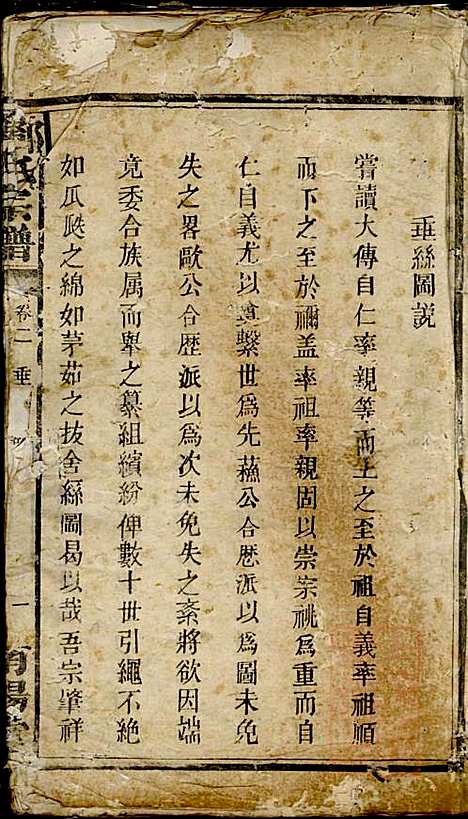 垂絲圖説
嘗讀大傳自仁率親等而上之至於祖自義率祖順
而下之至於禰盖率祖率親固以崇宗祧爲重而自
仁自義尤以尊繫世爲先蘓公合歴派以爲圖未免
失之畧歐公合歴派以爲次未免失之紊將欲因端
竟委合族属而舉之纂組繽紛俾數十世引繩不絶
如瓜瓞之綿如茅茹之拔舍絲圖曷以哉吾宗肇祥
氏宗譜
卷二
垂
一
陽